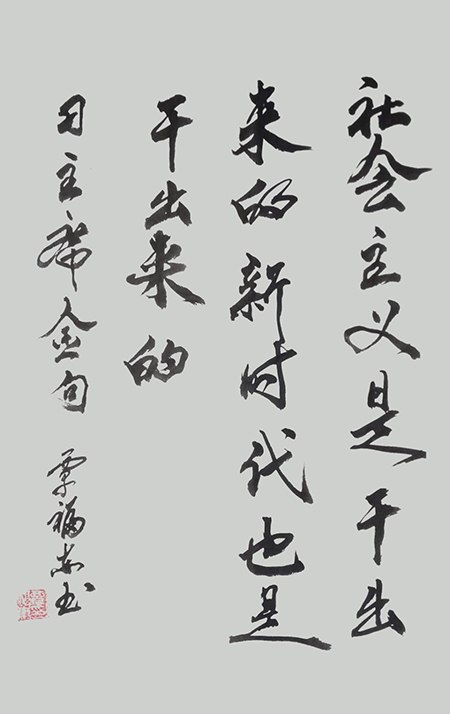 社会主义是干出
来的新时代也是
干出来的
习主席金句
覃福志书